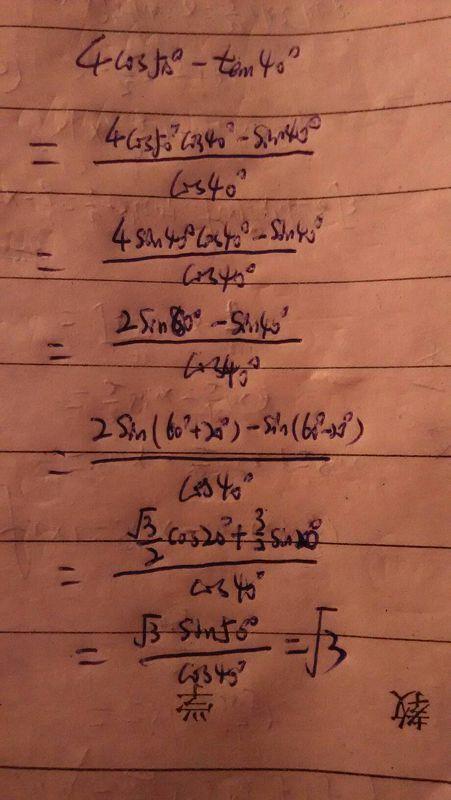 4cos50° - tan40°
= (4cos50°cos40° - sin40°) / cos40°
= (4sin40°cos40° - sin40°) / cos40°
= (2sin80° - sin40°) / cos40°
= (2sin(60°+20°) - sin(60°-20°)) / cos40°
= (√3/2 cos20° + 3/2 sin20°) / cos40°
= √3 sin50° / cos40° = √3
教